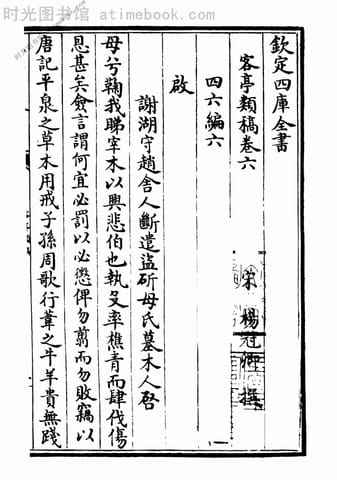 时光图书馆 atimebook.com
欽定四庫全書
客亭類稿卷六
宋 楊冠卿 撰
四六編六
啟
謝湖守趙舍人斷遣盜斫母氏墓木人啓
母兮鞠我睇宰木以興悲伯也執殳率樵青而肆伐傷
恩甚矣僉言謂何宜必罰以必懲俾勿翦而勿敗竊以
唐記平泉之草木用戒子孫周歌行葦之牛羊貴無踐